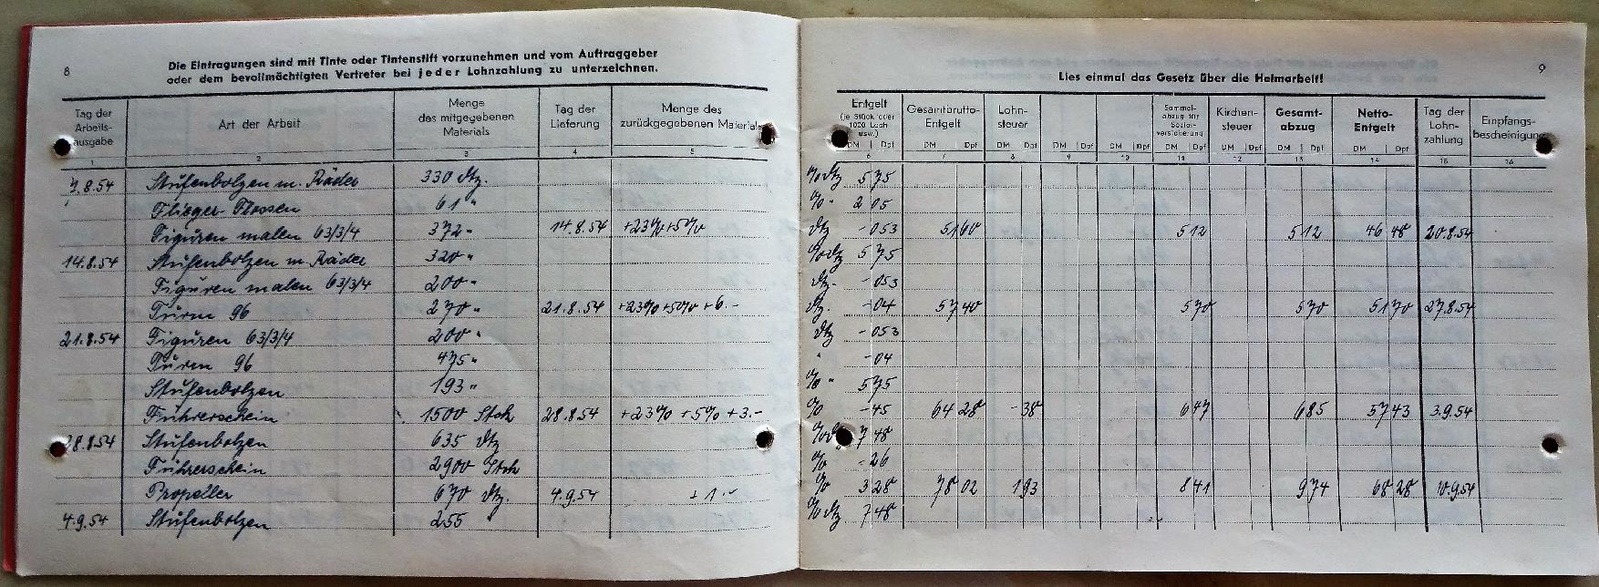 8
Die Eintragungen sind mit Tinte oder Tintenstift vorzunehmen und vom Auftraggeber
oder dem bevollmächtigten Vertreter bei jeder Lohnzahlung zu unterzeichnen.
Tag der Arbeitsausgabe | Art der Arbeit | Menge des mitgegebenen Materials | Tag der Lieferung | Menge des zurückgegebenen Materials
1 2 3 4 5
7.8.54 Stufenbolzen m. Räder 330 dtz.
Flieger-Flossen 61 "
Figuren malen 63/3/4 372 " 14.8.54 +23%+5%
14.8.54 Stufenbolzen m. Räder 320 "
Figuren malen 63/3/4 200 "
Türen 96 270 " 21.8.54 +23%+5%+6.-
21.8.54 Figuren 63/3/4 200 "
Türen 96 475 "
Stufenbolzen 193 "
Führerschein 1500 Stck 28.8.54 +23% +5% +3.-
28.8.54 Stufenbolzen 635 dtz
Führerschein 2900 Stck
Propeller 670 dtz. 4.9.54 + 1.-
4.9.54 Stufenbolzen 255 "
9
Lies einmal das Gesetz über die Heimarbeit!
Entgelt (je Stück oder 1000 Lach usw.) DM Dpf | Gesamtbrutto-Entgelt DM Dpf | Lohnsteuer DM Dpf | DM Dpf | DM Dpf | Sammelabzug für Sozialversicherung DM Dpf | Kirchensteuer DM Dpf | Gesamtabzug DM Dpf | Netto-Entgelt DM Dpf | Tag der Lohnzahlung | Empfangsbescheinigung
6 7 8 9 10 11 12 13 14 15 16
%dtz 5 75
% " 2 05
dtz -053 51 60 5 12 5 12 46 48 20.8.54
%dtz 5 75
dtz. -053
dtz. -04 57 40 5 70 5 70 51 70 27.8.54
dtz -053
" -04
% " 5 75
% -45 64 28 -38 6 47 6 85 57 43 3.9.54
%dtz 7 48
% -26
% 3 28 78 02 1 93 8 41 9 74 68 28 10.9.54
%dtz. 7 48